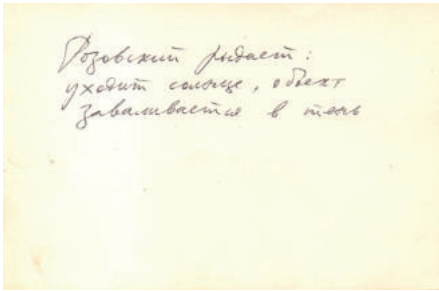 Розовский рыдает:
уходит солнце, объект
заваливается в тень